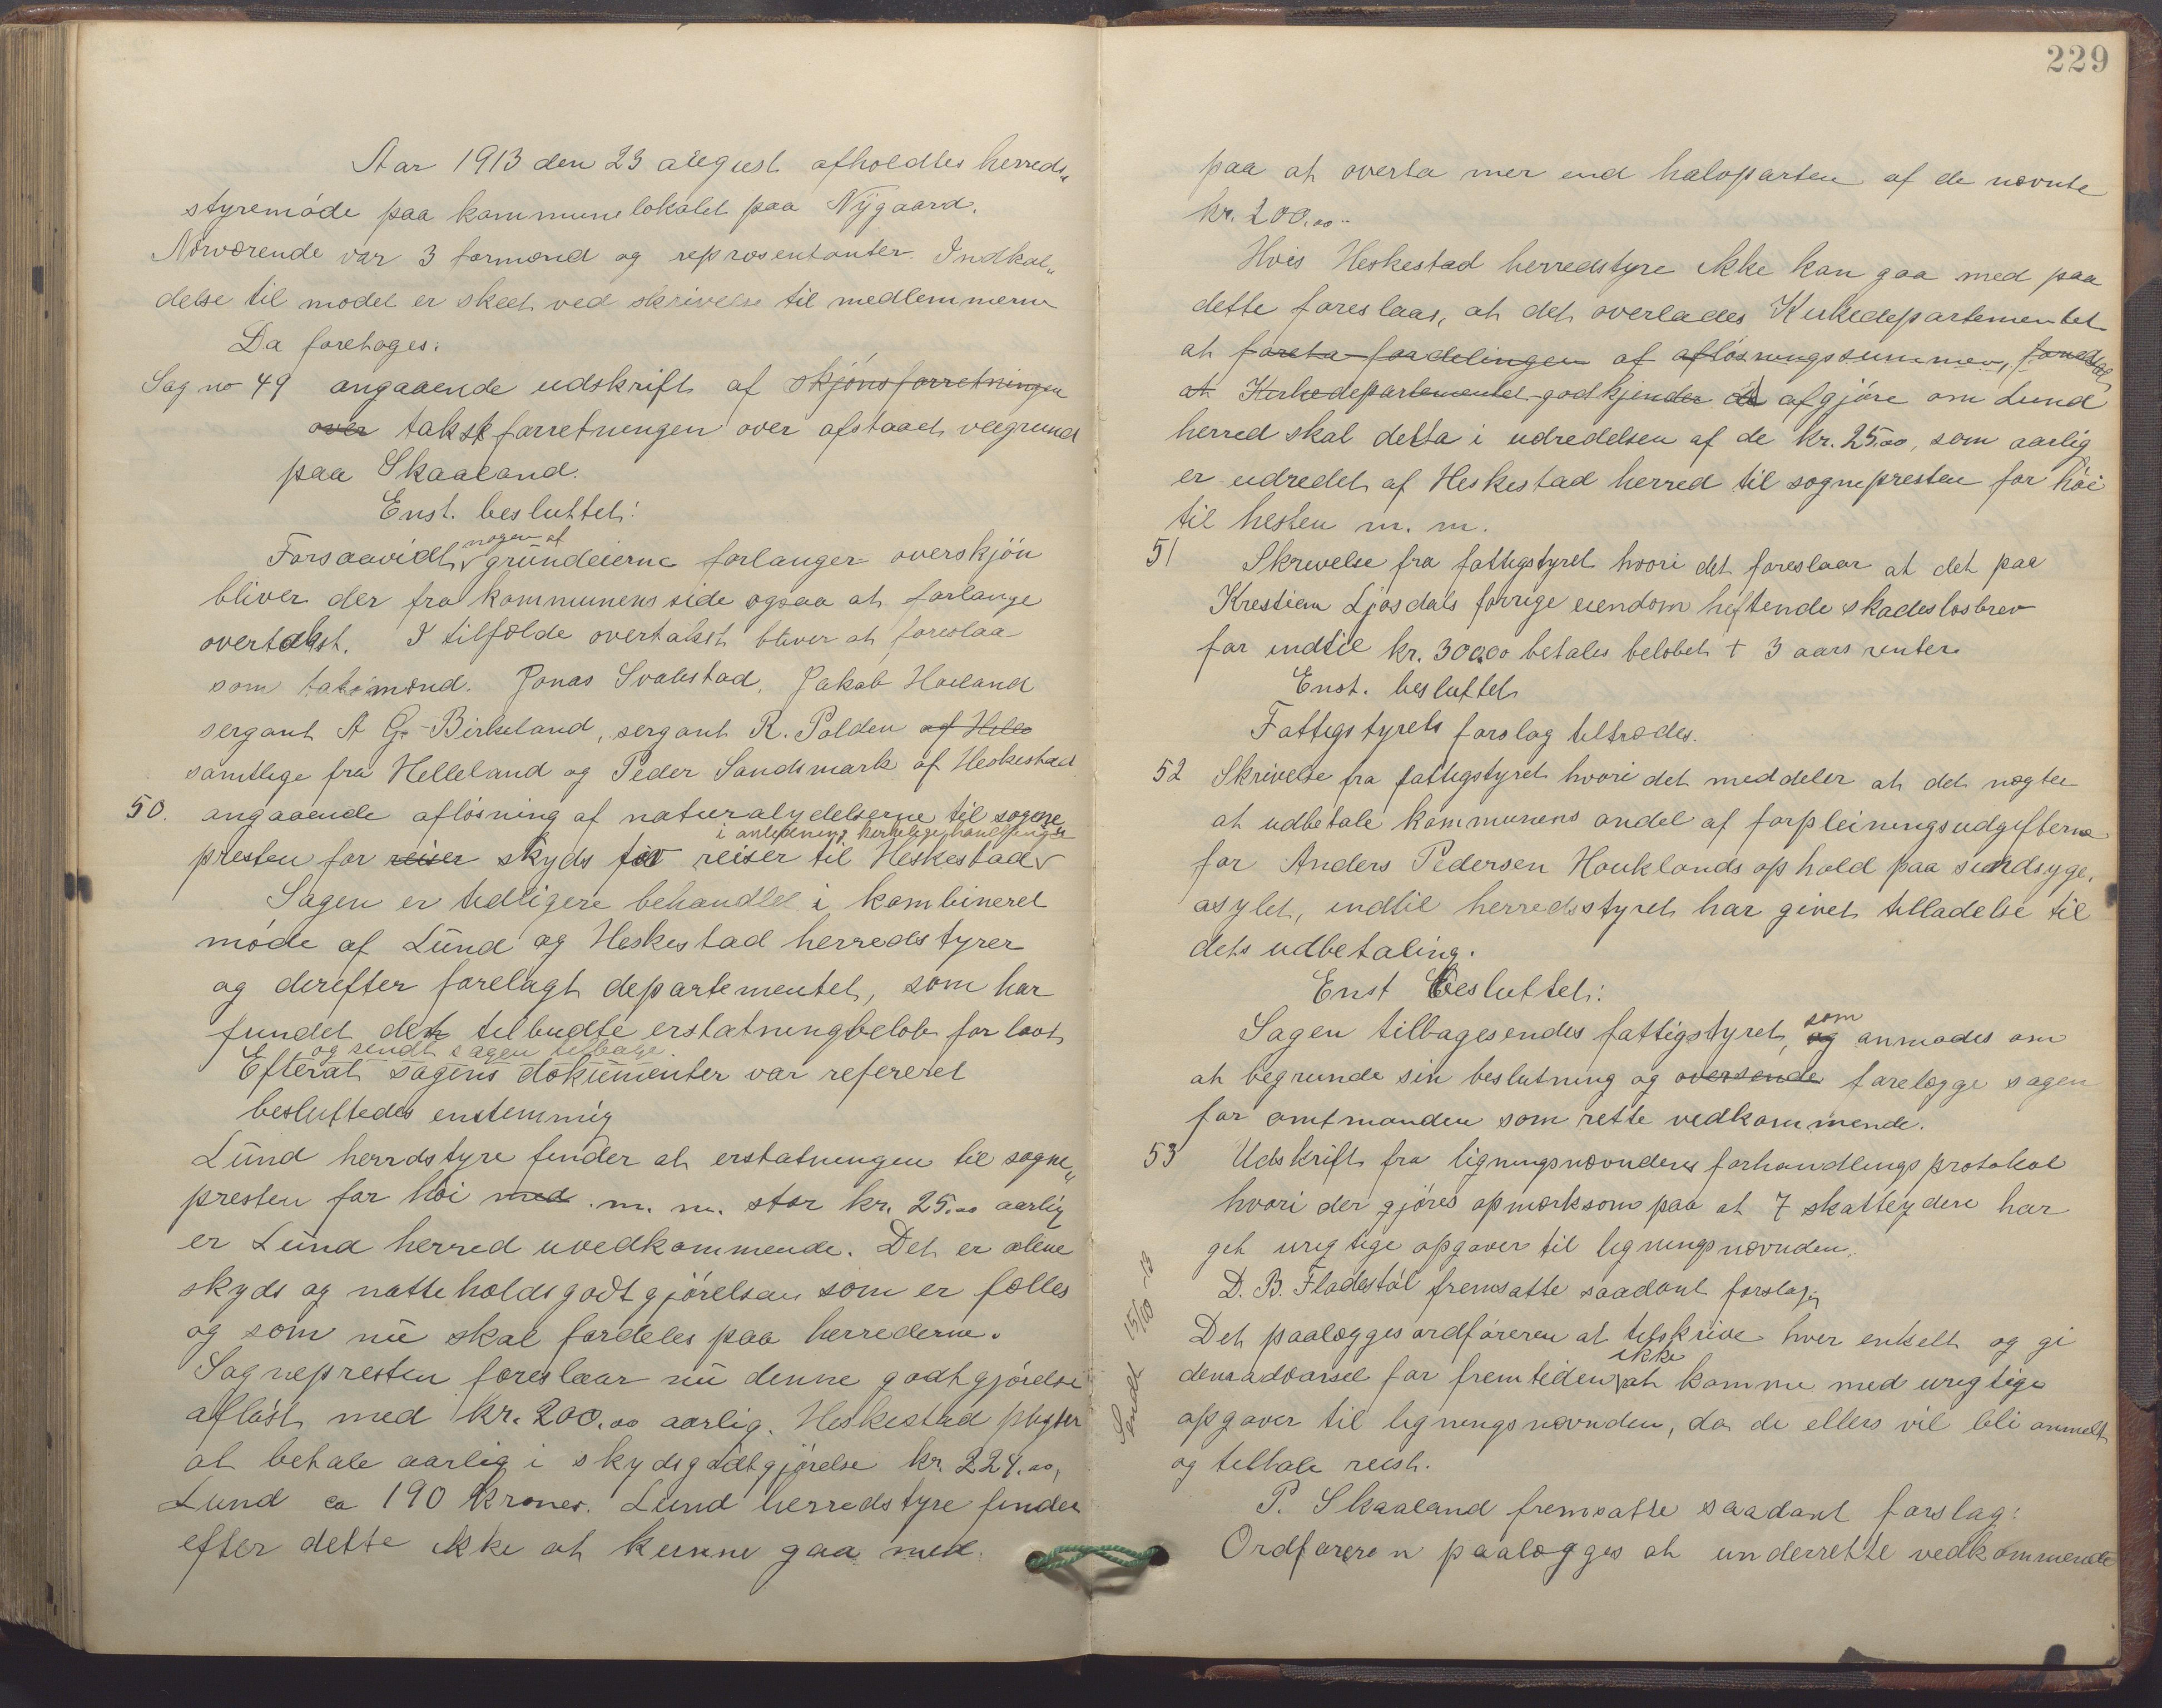 Aar 1913 den 23 august afholdtes herreds„
styremöde paa kommunelokalet paa Nygaard.
Nærværende var 3 formænd og repræsentanter. Indkal„
delse til mødet er skeet ved skrivelse til medlemmerne
Da foretoges:
Sag no 49 angaaende udskrift af skjönsforretningen
over takstforretningen over afstaaet veigrund
paa Skaaland.
Enst. besluttet:
nogen af
Forsaavidt grundeierne forlanger overskjön
bliver der fra kommunens side ogsaa at forlange
overtakst. I tilfælde overtakst bliver at foreslaa
som takstmænd. Jonas Svalestad, Jakob Hovland
sergant A G. Birkeland, sergant R. Polden af Helle
samtlige fra Helleland og Peder Sandsmark af Heskestad
50. angaaende aflösning af naturalydelserne til sogne
i anledning kirkelige handlinger
presten for reiser skyds for reiser til Heskestad
Sagen er tidligere behandlet i kombineret
möde af Lund og Heskestad herredstyrer
og derefter forelagt departementet, som har
fundet det tilbudte erstatningbelöb for lavt
og sendt sagen tilbage.
Efterat sagens dokumenter var refereret
besluttedes enstemmig
Lund herrdstyre finder at erstatningen til sogne„
presten for höi med m. m. stor kr. 25.00 aarlig
er Lund herred uvedkommende. Det er alene
skyds og natteholdsgodtgjörelsen som er fælles
og som nu skal fordeles paa herrederne.
Sognepresten foreslaar nu denne godtgjörelse
aflöst med kr. 200.00 aarlig. Heskestad pleier
at betale aarlig i skydsgodtgjörelse kr. 224.00,
Lund ca 190 kroner. Lund herredstyre finder
efter dette ikke at kunne gaa med
229
paa at overta mer end halvparten af de nævnte
kr. 200.00
Hvis Heskestad herredstyre ikke kan gaa med paa
dette foreslaas, at det overlades Kirkedepartementet
at foreta fordelingen af aflösningssummen,
at Kirkedepartementet godkjender afgjöre om Lund
herred skal delta i udredelsen af de kr. 25.00, som aarlig
er udredet af Heskestad herred til sognepresten for höi
til hesten m. m.
51 Skrivelse fra fattigstyret hvori det foreslaar at det paa
Krestian Ljosdals forrige eiendom heftende skadeslosbrev
for indtil kr. 300.00 betales belöbet + 3 aars renter
Enst. besluttet
Fattigstyrets forslag tiltrædes.
52 Skrivelse fra fattigstyret hvori det meddeler at det negter
at udbetale kommunens andel af forpleiningsudgifterne
for Anders Pedersen Houklands ophold paa sindsyge,
asylet, indtil herredsstyret har givet tilladelse til
dets udbetaling.
Enst besluttet:
som
Sagen tilbagesendes fattigstyret, og anmodes om
at begrunde sin beslutning og oversende forelægge sagen
for amtmanden som rette vedkommende.
53 Udskrift fra ligningsnævnderes forhandlingsprotokol
hvori der gjöres opmærksom paa at 7 skatteydere har
git urigtige opgaver til ligningsnævnden.
D. B. Fladestöl fremsatte saadant forslag:
Det paalægges ordföreren at tilskrive hver enkelt og gi
ikke
dem advarsel for fremtiden at komme med urigtige
opgaver til ligningsnævnden, da de ellers vil bli anmelt
og tiltale reist.
P. Skaaland fremsatte saadant forslag:
Ordföreren paalægges at underrette vedkommende
Sendt 15/10 - 13